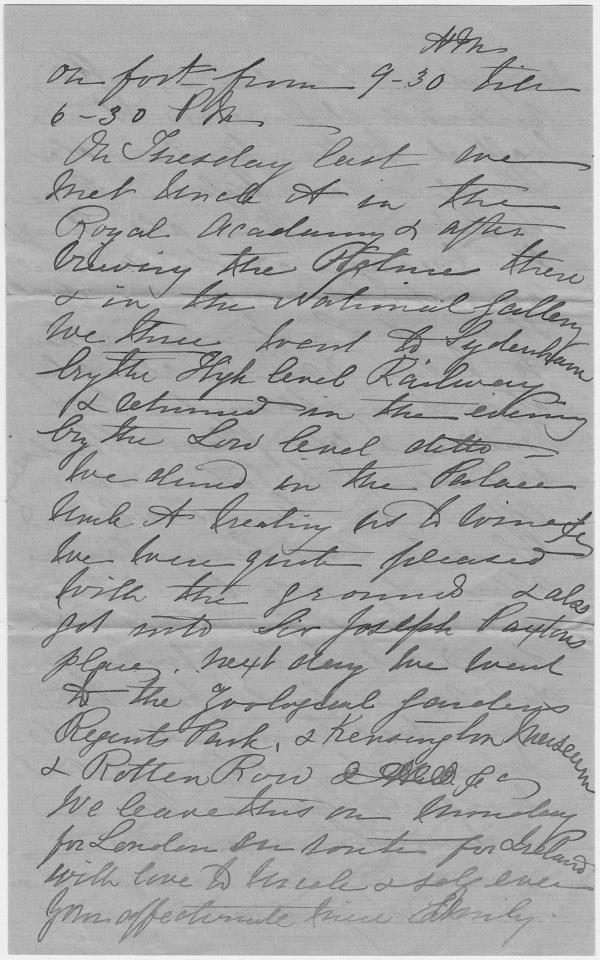 A M
on foot from 9-30 till
6-30 P M
On Tuesday last we
met Uncle A in the
Royal Academy & after
viewing the there
& in the National Gallery
We three went to Sydenham
by the High level Railway
& returned in the evening
by the Low level ditto
We dined in the Palace
Uncle A treating us to wine &c
We were quite pleased
with the grounds & also
got into Sir Joseph Paxtons
place. next day we went
to the Zoological Gardens
Regents Park, & Kensington Museum
& Rotten Row &c
We leave this on Monday
for London en route for Ireland
with love to Uncle & self ever
Your affectionate niece Emily.